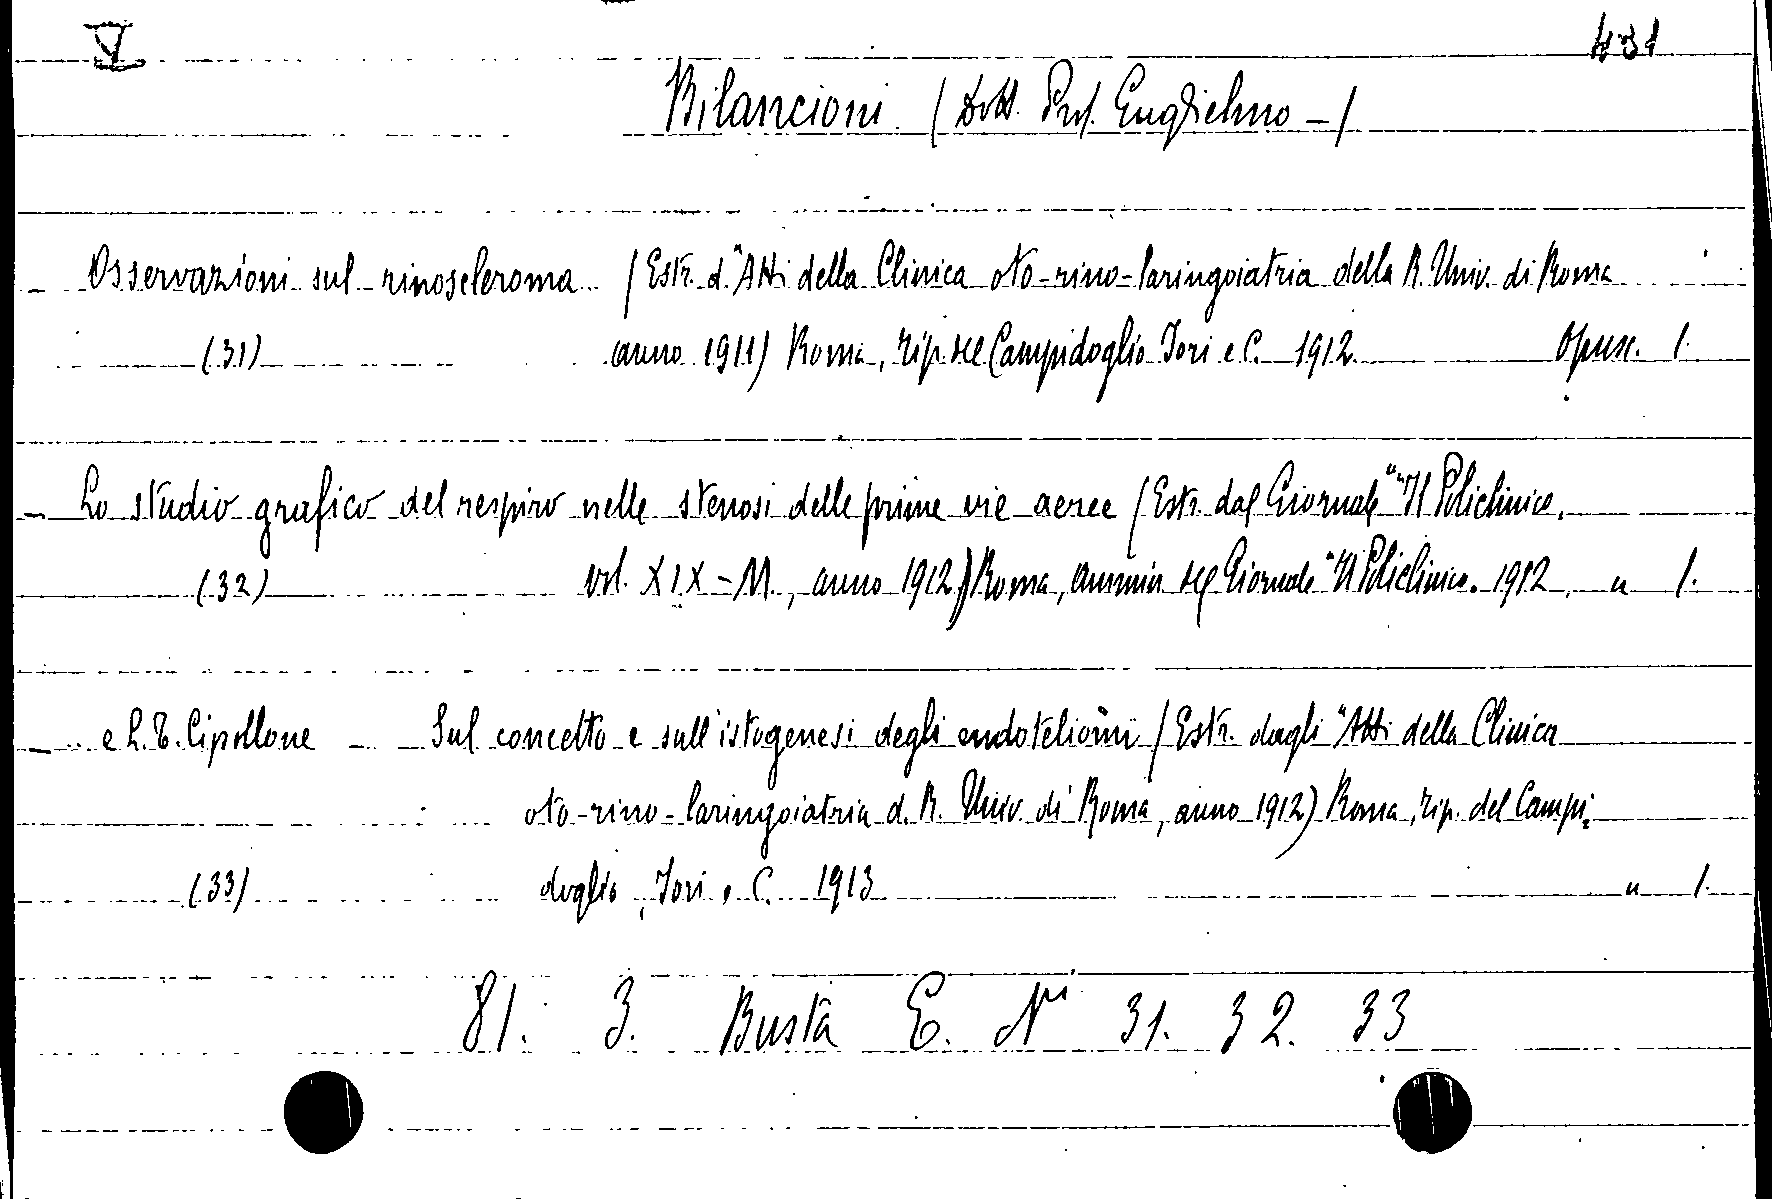 V 431
Bilancioni (Dott. Prof. Guglielmo -)
- Osservazioni sul rinoscleroma (Estr. d. "Atti della Clinica oto-rino-laringoiatria della R. Univ. di Roma
(31) anno 1911) Roma, Tip. del Campidoglio Tori e C. 1912. Opusc. 1.
- Lo studio grafico del respiro nelle stenosi delle prime vie aeree (Estr. dal Giornale "Il Policlinico,
(32) vol. XIX-M., anno 1912) Roma, ammin. del Giornale "Il Policlinico. 1912 " 1.
- e L. T. Cipollone - Sul concetto e sull'istogenesi degli endoteliomi (Estr. dagli "Atti della Clinica
oto-rino-laringoiatria d. R. Univ. di Roma, anno 1912) Roma, Tip. del Campi=
(33) doglio, Tori e C. 1913 " 1.
81. 3. Busta E. Ni 31. 32. 33